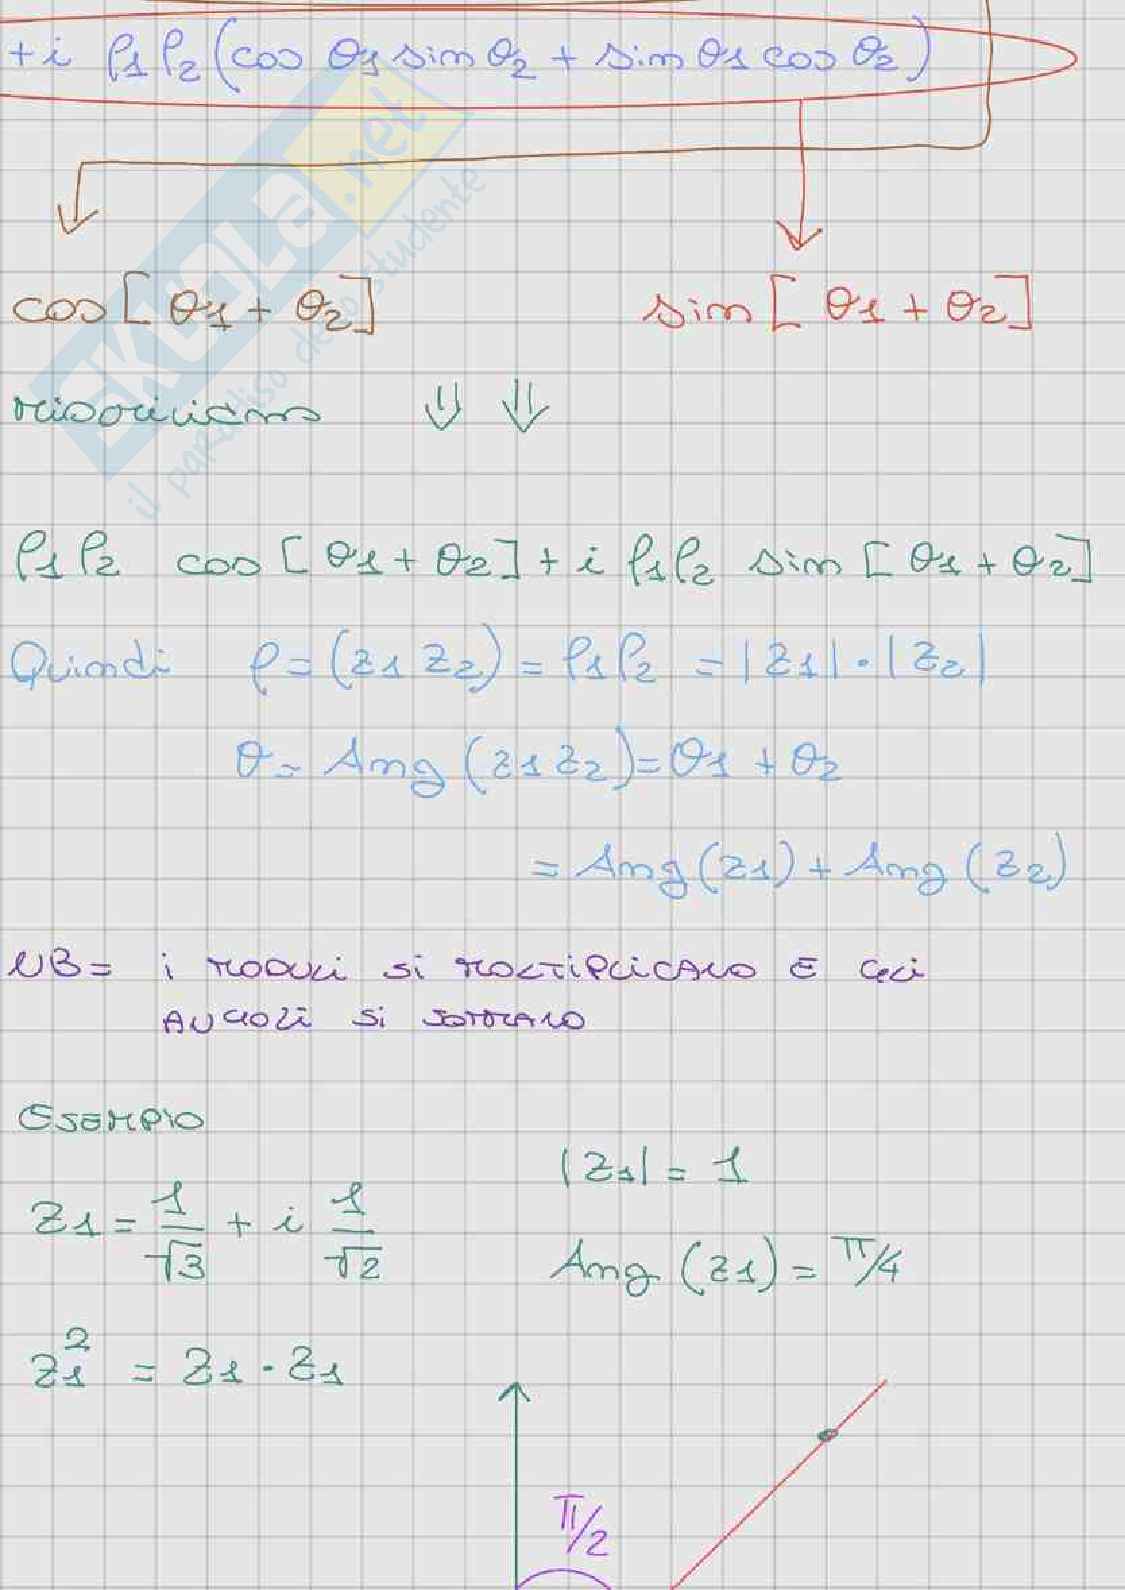 +i ρ1ρ2(cos θ1 sin θ2 + sin θ1 cos θ2)
cos[θ1+θ2] sin[θ1+θ2]
riscriviamo ⇓ ⇓
ρ1ρ2 cos[θ1+θ2]+i ρ1ρ2 sin[θ1+θ2]
Quindi ρ=(z1 z2)=ρ1ρ2 =|z1|·|z2|
θ= Ang(z1 z2)=θ1+θ2
= Ang(z1)+Ang(z2)
NB= i MODULI Si MOLTIPLICANO E GLI
ANGOLI Si SOMMANO
ESEMPIO
|z1|=1
z1=1/√3 + i 1/√2
Ang(z1)=π/4
z1² = z1·z1
π/2
SKUOLA.net
il paradiso dello studente